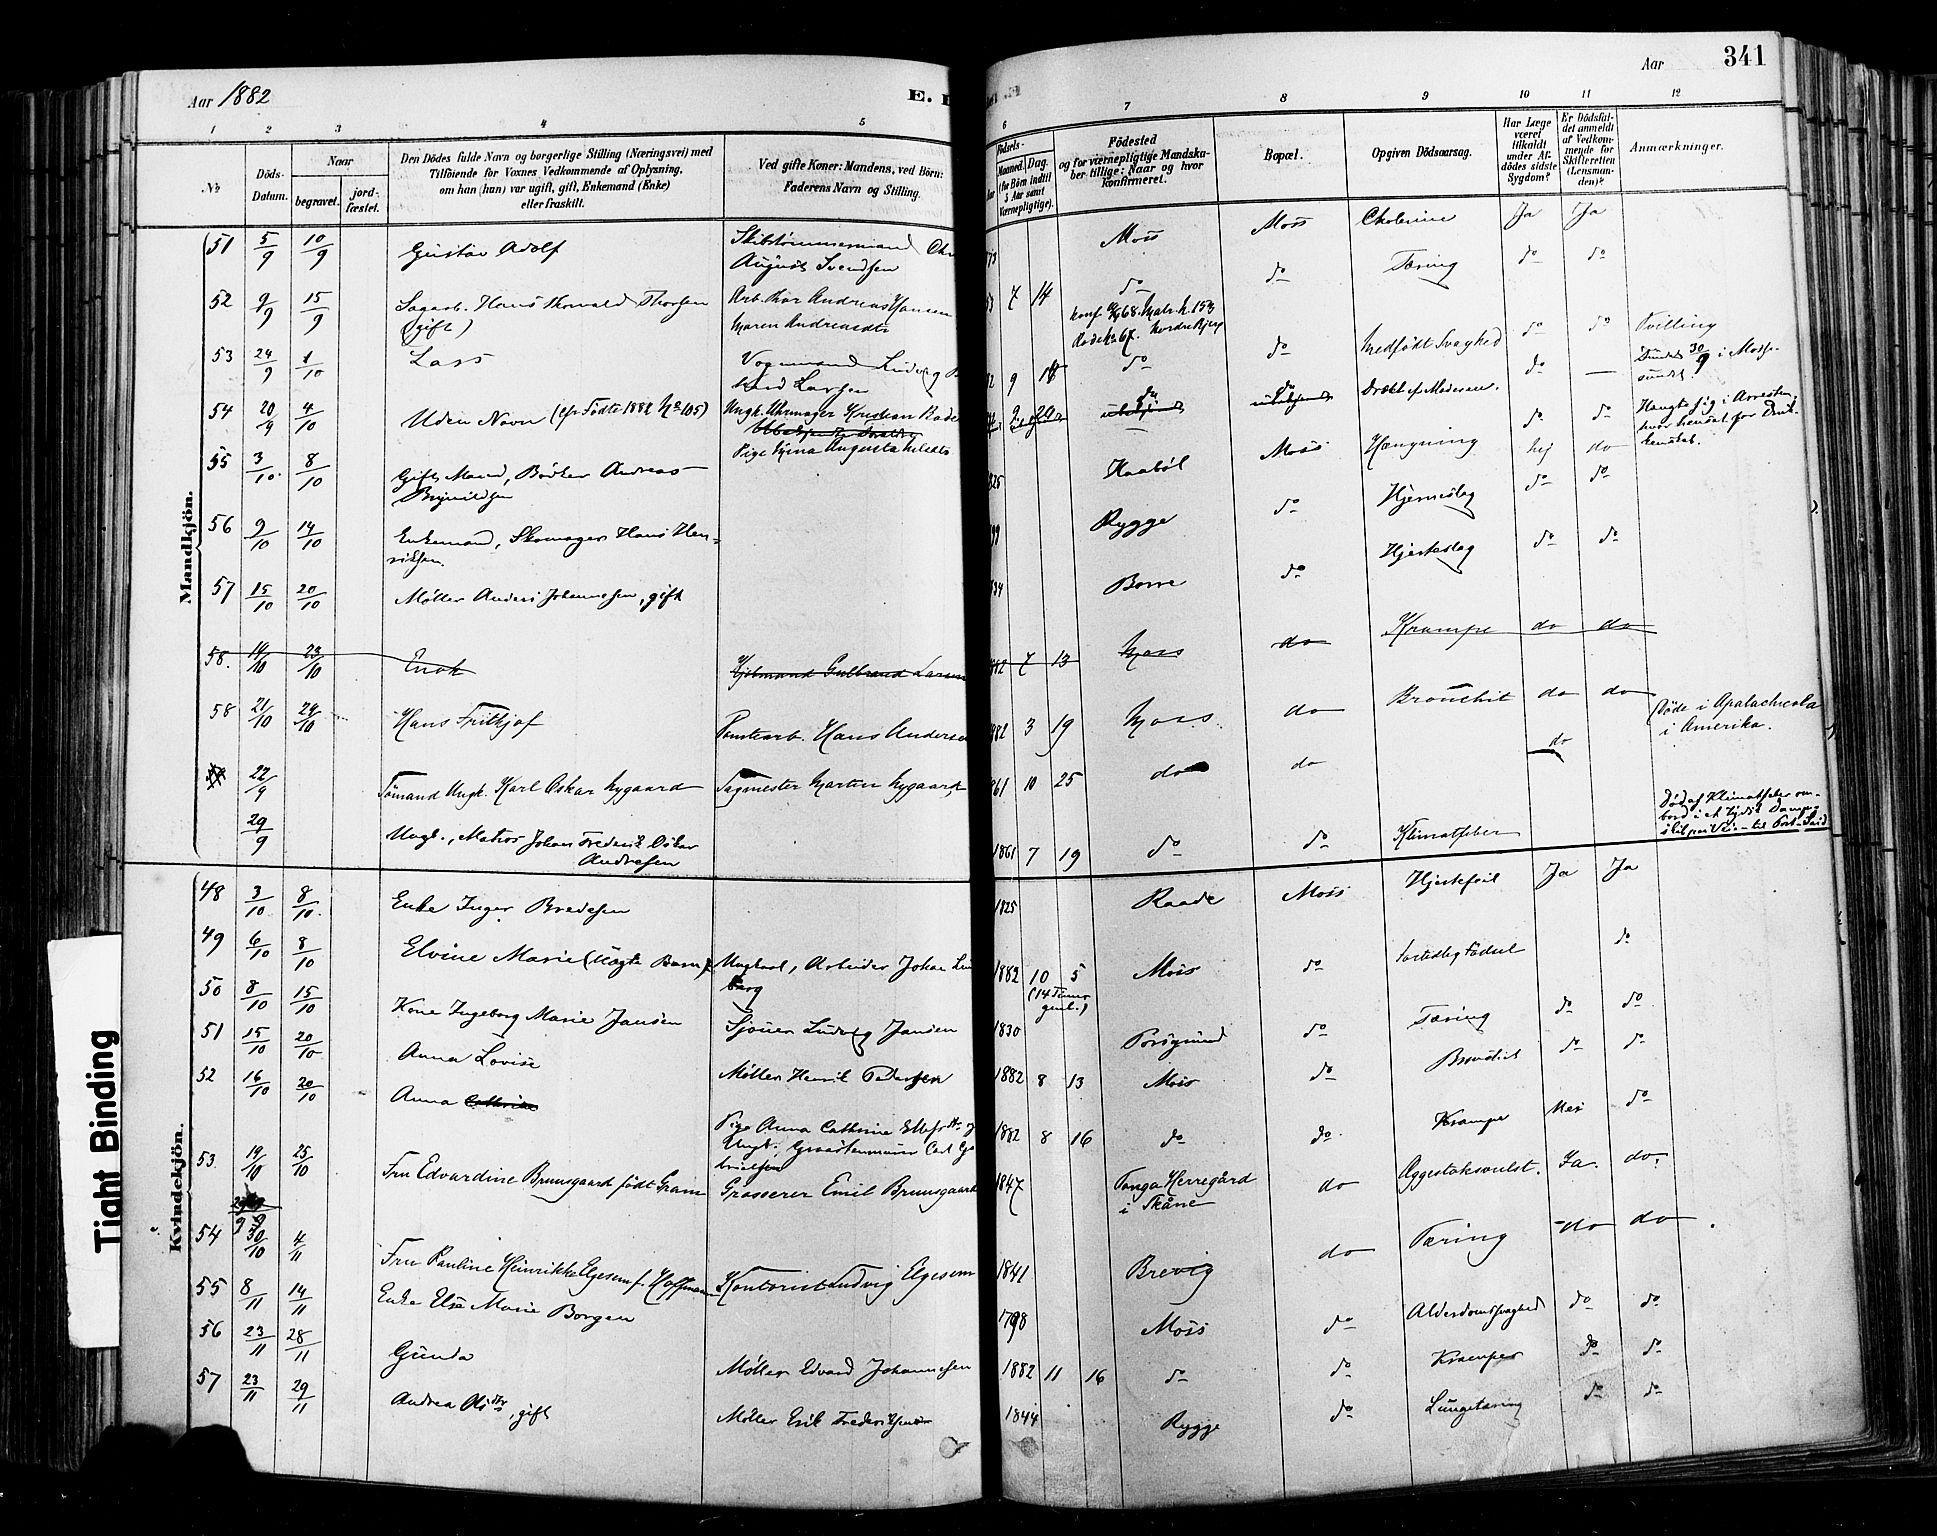 Aar 1882
E. D
341
Aar
1 2 3 4 5
6 7 8 9 10 11 12
No
Döds-
Datum.
Naar
begravet.
jord-
fæstet.
Den Dödes fulde Navn og borgerlige Stilling (Næringsvei) med
Tilföiende for Voxnes Vedkommende af Oplysning,
om han (hun) var ugift, gift, Enkemand (Enke)
eller fraskilt.
Ved gifte Koner: Mandens, ved Börn:
Faderens Navn og Stilling.
Födsels-
Maaned. Dag.
(for Börn indtil
5 Aar samt
Værnepligtige).
Födested
og for værnepligtige Mandska-
ber tillige: Naar og hvor
konfirmeret.
Bopæl.
Opgiven Dödsaarsag.
Har Læge
været
tilkaldt
under Af-
dödes sidste
Sygdom?
Er Dödsfal-
det anmeldt
af Vedkom-
mende for
Skifteretten
(Lensman-
den)?
Anmærkninger.
Mandkjön.
51 5/9 10/9 Gustav Adolf Skibstømmermand
August Svendsen Moss Moss Cholerine Ja Ja
52 9/9 15/9 Sagarb. Hans Thorvald Thorsen
(gift) Arb. Thor Andreas Hansen
Maren Andreasdtr 7 14 do do Tæring do do
53 24/9 1/10 Lars Vognmand Ludvig
Larsen 9 do do Medfødt Svaghed do do Tvilling
54 20/9 4/10 Uden Navn (cfr Fødte 1882 No 105) Ungk. Uhrmager Kristian
Pige Augusta Dræbt af Moderen. do — Fundet 30/9 i Mosse-
sundet.
55 3/10 8/10 Gift Mand, Bødker Andreas
Brynildsen 1825 Haabøl Moss Hængning do do Hængte sig i Arresten,
hvor hensat for Druk-
kenskab.
56 9/10 14/10 Enkemand, Skomager Hans Hen-
riksen. Rygge do Hjerneslag do do
57 15/10 20/10 Møller Anders Johannesen, gift Borre do Hjerteslag do do
58. 19/10 23/10 Enok Gulbrand Larsen 1882 7 13 Moss do Krampe do do
58 21/10 24/10 Hans Frithjof Tomtearb. Hans Andersen 1882 3 19 Moss do Bronchit do do
22/9 Sømand Ungk. Karl Oskar Nygaard Sagmester Martin Nygaard 1861 10 25 do do do (Døde i Apalachicola
i Amerika.
29/9 Ungk., Matros Johan Frederik Oskar
Andresen 1861 7 19 do do Klimatfeber Død af Klimatfeber om-
bord i et tydsk Damp-
skib til Port-Said
Kvindekjön.
48 3/10 8/10 Enke Inger Bredesen 1825 Raade Moss Hjertefeil Ja Ja
49 6/10 8/10 Elvine Marie (uægte Barn) Ungkarl, Arbeider Johan Lin
berg 1882 10 5
(14 Timer
gml.) Moss do Fortidlig Fødsel do
50 8/10 15/10 Kone Ingeborg Marie Jansen Sjøuer Ludvig Jansen 1830 Porsgrund do Tæring do do
51 15/10 20/10 Anna Lovise Møller Henrik Pedersen 1882 8 13 Moss do Bronchit do do
52 16/10 20/10 Anna Cathrine Pige Anna Cathrine
Ungk. Carl 1882 8 16 do do Krampe Nei do
53 19/10 25/10 Fru Edvardine Brunsgaard født Gram Grosserer Emil Brunsgaard 1847 Tonga Herregård
i Skåne do Æggestoksvulst. Ja. do.
54 30/10 4/11 Fru Pauline Heinrikke Elgesem f. Hoffmann Kontorist Ludvig Elgesem 1841 Brevig do Tæring do do
55 8/11 14/11 Enke Else Marie Borgen 1798 Moss do Alderdomssvaghed do do
56 23/11 28/11 Gunda Møller Edvard Johannesen 1882 11 16 do do Kramper do do
57 23/11 29/11 Andrea Olsdtr, gift Møller Erik Frederiksen 1844 Rygge do Lungetæring do do
Tight Binding